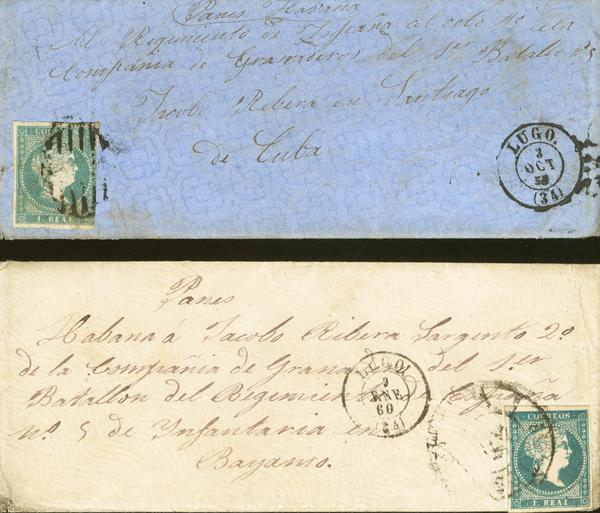 Panes Habana
Al Regimiento de España al
Compánia de Granaderos del 1er Batallon nº 5
Jacobo Ribera en Santiago
de Cuba
CORREOS
1. REAL
LUGO.
3
OCT
58
(34)
Panes
Habana á Jacobo Ribera Sargento 2º
de la Compañia de Grana del 1.er
Batallon del Regimien España
nº 5 de Infantaria en
Bayamo.
LUGO.
9
ENE
60
(34)
CORREOS
1. REAL